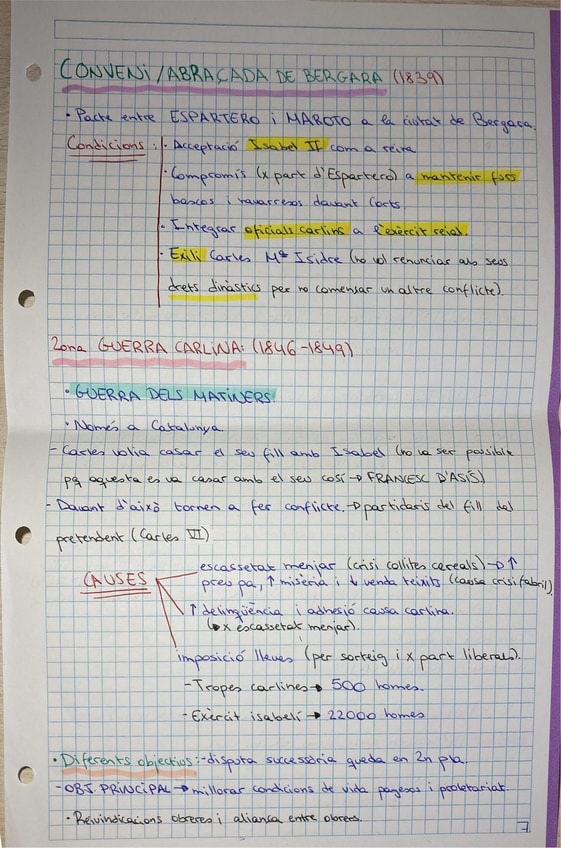 CONVENI/ABRAÇADA DE BERGARA (1839)
• Pacte entre ESPARTERO i MAROTO a la ciutat de Bergara.
Condicions: • Acceptació Isabel II com a reina
• Compromís (x part d'Espartero) a mantenir furs
bascos i navarresos davant Corts.
• Integrar oficials carlins a l'exèrcit reial.
• Exili Carles Mª Isidre (no vol renunciar als seus
drets dinàstics per no comensar un altre conflicte).
2ona GUERRA CARLINA: (1846-1849)
• GUERRA DELS MATINERS
• Només a Catalunya
- Carles volia casar el seu fill amb Isabel (no va ser possible
pq aquesta es va casar amb el seu cosí → FRANCESC D'ASÍS)
- Davant d'això tornen a fer conflicte. → partidaris del fill del
pretendent (Carles VI)
CAUSES
escassetat menjar (crisi collites cereals) → ↑
preu pa, ↑ misèria i ↓ venda teixits (causa crisi fabril)
↑ delinqüència i adhesió causa carlina.
(↳ x escassetat menjar).
imposició lleves (per sorteig i x part liberals).
- Tropes carlines → 500 homes.
- Exèrcit isabelí → 22000 homes
• Diferents objectius: - disputa successòria queda en 2n pla.
- OBJ. PRINCIPAL → millorar condicions de vida pagesos i proletariat.
• Reivindicacions obreres i aliança entre obrers.
7